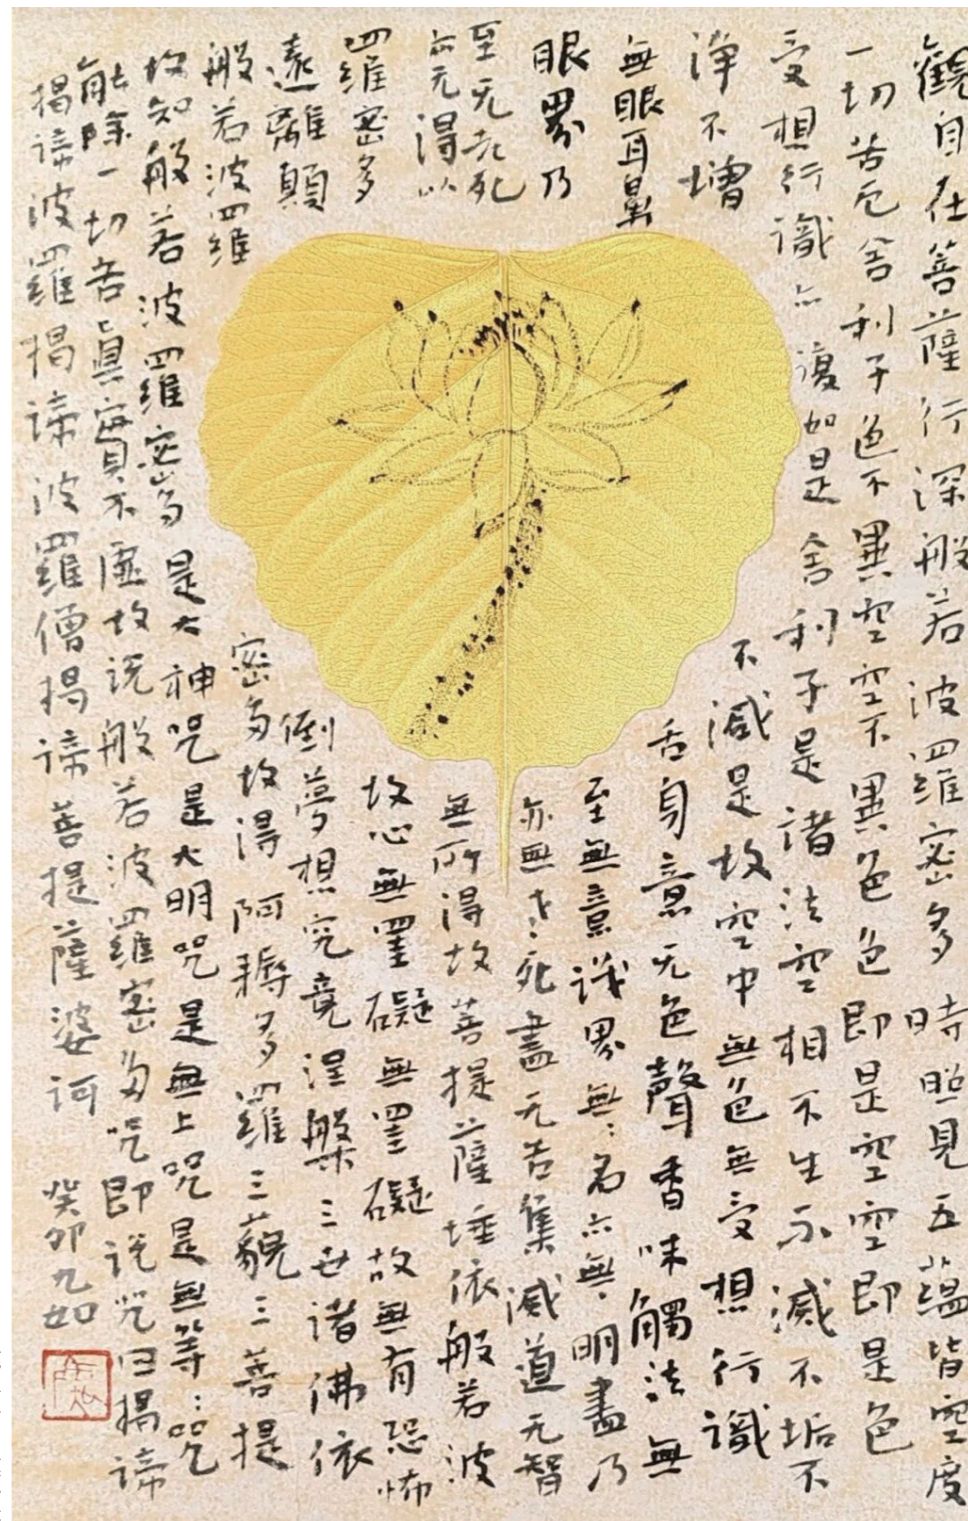 觀自在菩薩行深般若波羅密多時照見五蘊皆空度
一切苦厄舍利子色不異空空不異色色即是空空即是色
受想行識亦復如是舍利子是諸法空相不生不滅不垢不
淨不增不減是故空中無色無受想行識
無眼耳鼻舌身意无色聲香味觸法無
眼界乃至無意識界無:名亦無:明盡乃
至无老死亦無老:死盡无苦集滅道无智
亦无得以無所得故菩提薩埵依般若波
羅密多故心無罣礙無罣礙故無有恐怖
遠離顛倒夢想究竟涅槃三世諸佛依
般若波羅密多故得阿耨多羅三藐三菩提
故知般若波羅密多是大神咒是大明咒是無上咒是無等:咒
能除一切苦真實不虛故説般若波羅密多咒即説咒曰揭諦
揭諦波羅揭諦波羅僧揭諦菩提薩婆訶 癸卯九如